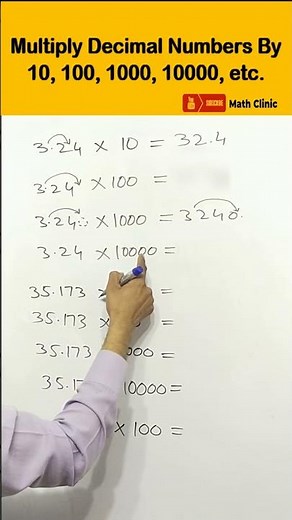 Multiply Decimal Numbers By
10, 100, 1000, 10000, etc.
SUBSCRIBE Math Clinic
3.24 × 10 = 32.4
3.24 × 100 =
3.24 × 1000 = 3240.
3.24 × 10000 =
35.173 =
35.173 =
35.173 000 =
35.1 10000 =
× 100 =